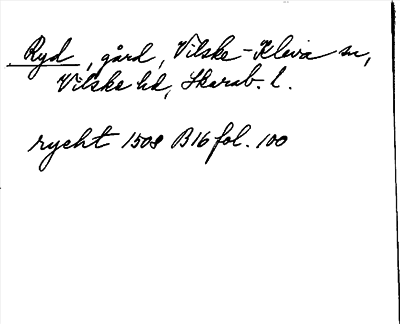 Ryd, gård, Vilske-Kleva sn,
Vilske hd, Skarab. l.
rycht 1508 B16 fol. 100